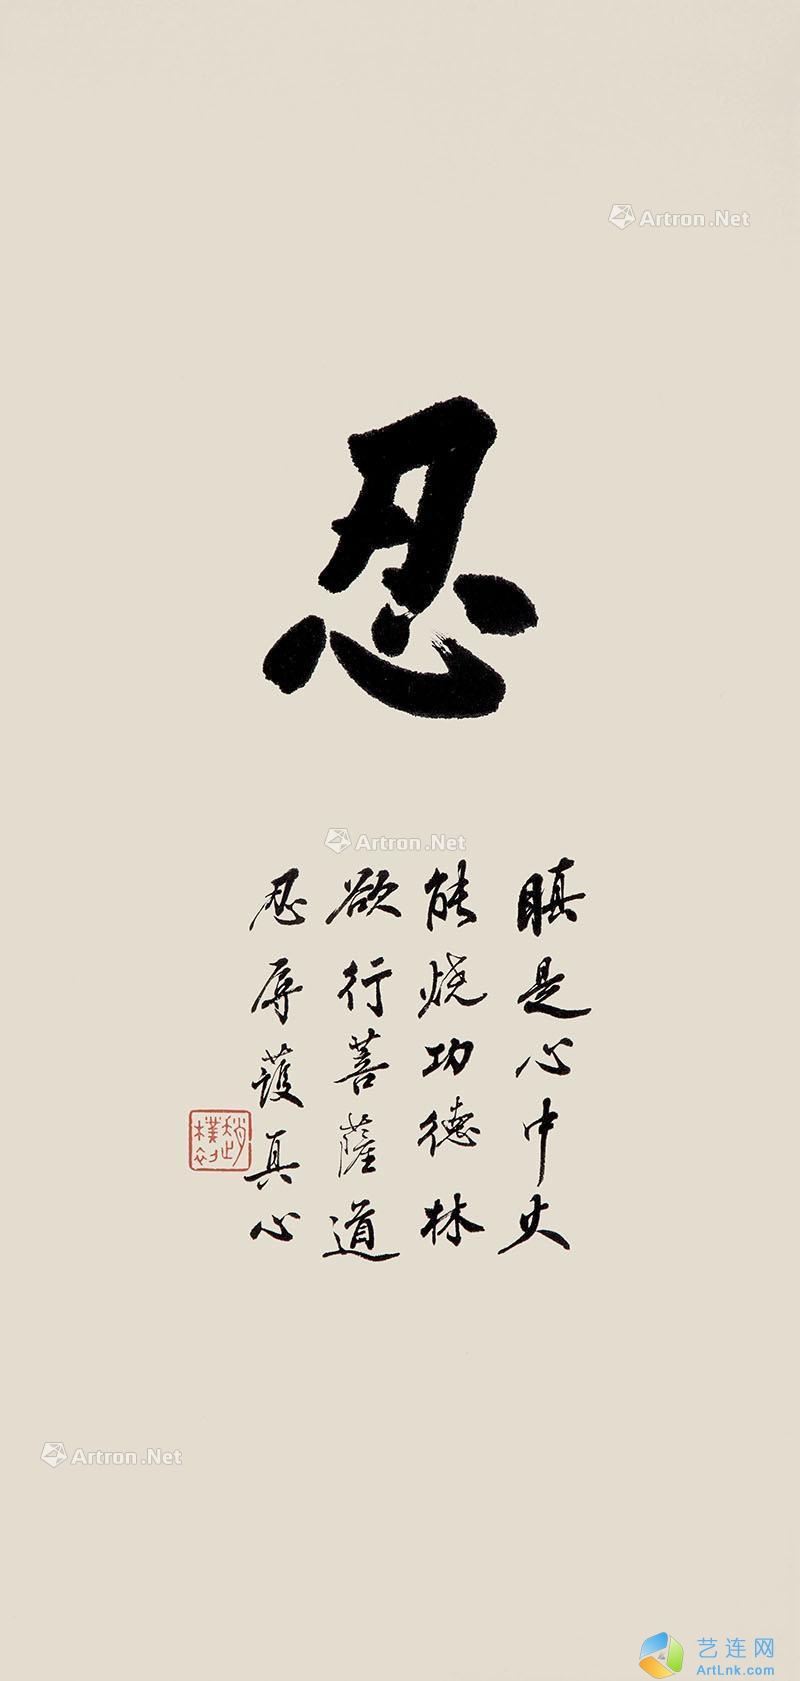 忍
瞋是心中火
能烧功德林
欲行菩薩道
忍辱護真心
趙樸初
Artron.Net
Artron.Net
Artron.Net
艺连网
ArtLnk.com